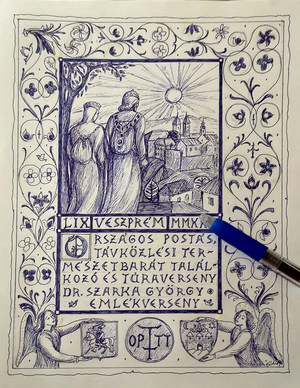 LIX VESZPRÉM MMXX
ORSZÁGOS POSTÁS,
TÁVKÖZLÉSI TER-
MÉSZETBARÁT TALÁL-
KOZÓ ÉS TÚRAVERSENY
DR. SZARKA GYÖRGY
EMLÉKVERSENY
OP TT